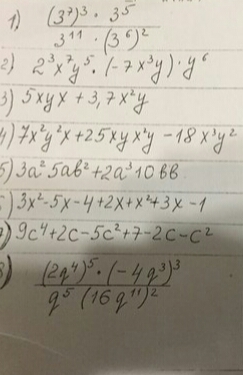 1) (3⁷)³ · 3⁵
3¹¹ · (3⁶)²
2) 2³x⁷y⁵ · (-7x³y) · y⁶
3) 5xyx + 3,7x²y
4) 7x²y²x + 25xyx²y - 18x³y²
5) 3a²5ab² + 2a³10bb
6) 3x² - 5x - 4 + 2x + x² + 3x - 1
7) 9c⁴ + 2c - 5c² + 7 - 2c - c²
8) (2q⁴)⁵ · (-4q³)³
q⁵ (16q¹¹)²